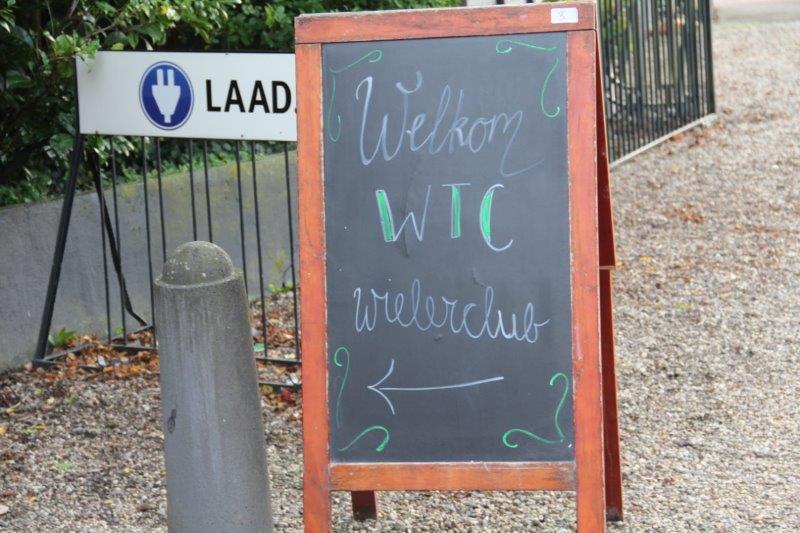 3
LAAD
Welkom
WTC
wielerclub